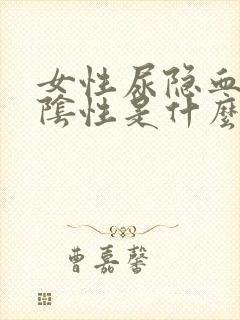 女性尿隐血
陰性是什麼
曹嘉馨